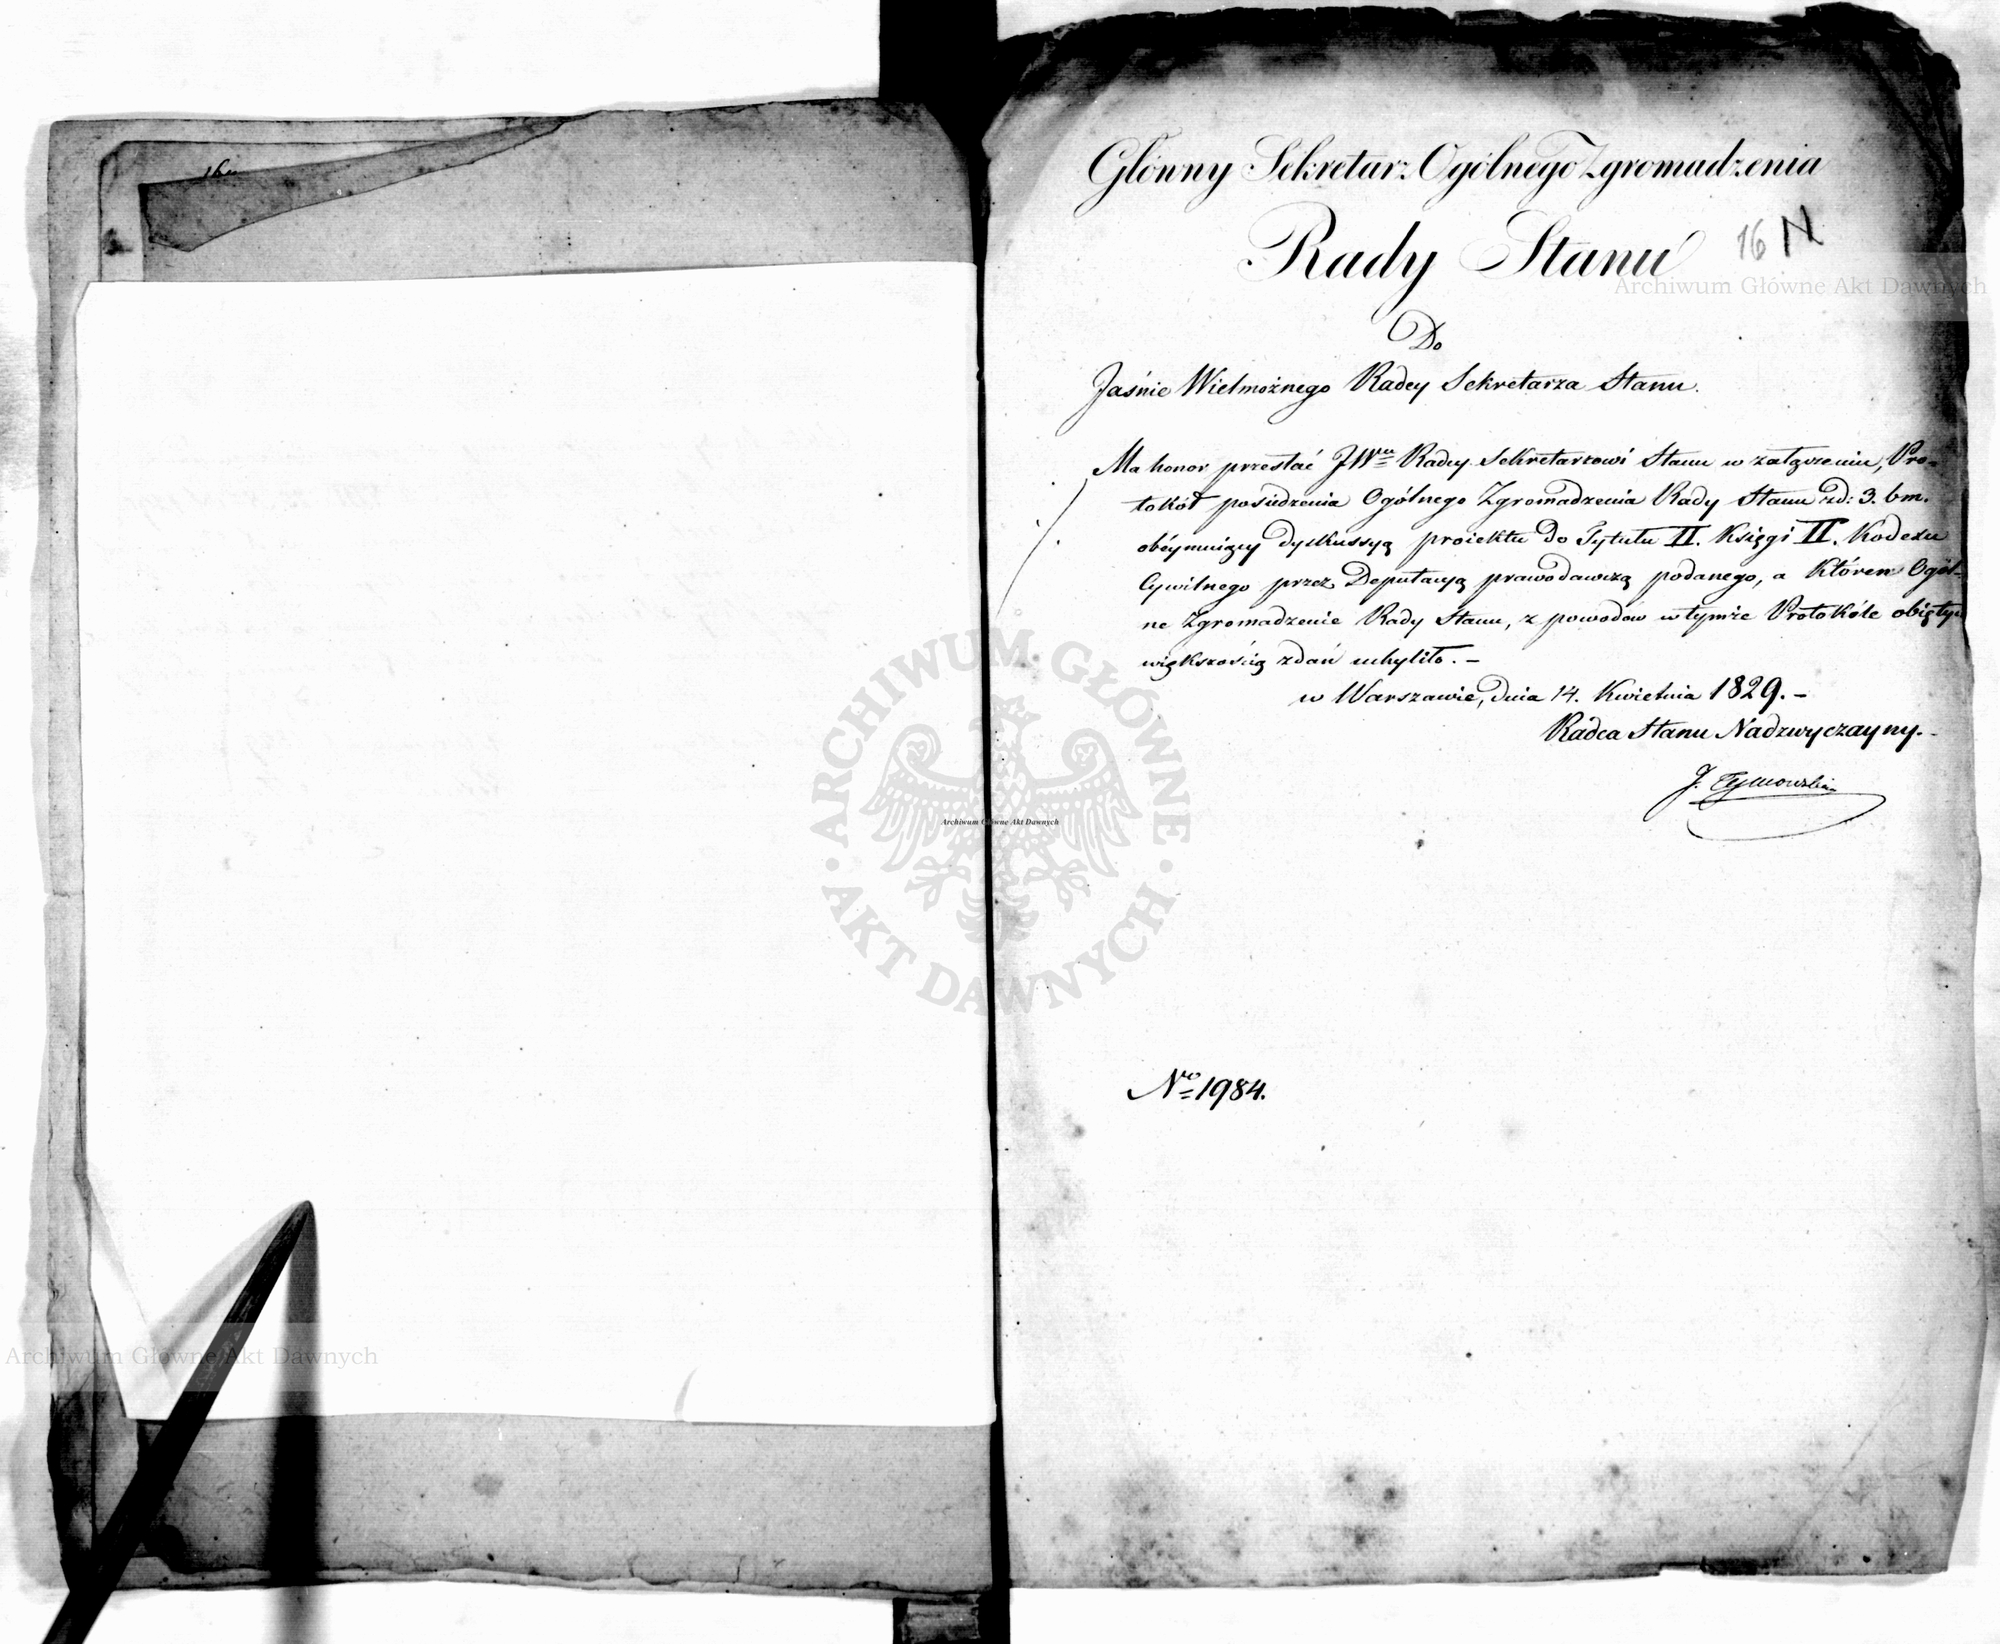 Główny Sekretarz Ogólnego Zgromadzenia
Rady Stanu
16 N
Archiwum Główne Akt Dawnych
Do
Jaśnie Wielmożnego Radcy Sekretarza Stanu.
Ma honor przesłać JWmu Radcy Sekretarzowi Stanu w załączeniu, Pro-
tokół posiedzenia Ogólnego Zgromadzenia Rady Stanu z d: 3. b m.
obéymuiący dyskussyą proiektu do Tytułu II. Księgi II. Kodexu
Cywilnego przez Deputacyą prawodawczą podanego, a któren Ogól-
ne Zgromadzenie Rady Stanu, z powodów w tymże Protokóle obiętych
większością zdań uchyliło. -
w Warszawie, dnia 14. Kwietnia 1829. -
Radca Stanu Nadzwyczayny. -
J. Tymowski
ARCHIWUM GŁÓWNE AKT DAWNYCH
Archiwum Główne Akt Dawnych
Nro 1984.
Archiwum Główne Akt Dawnych